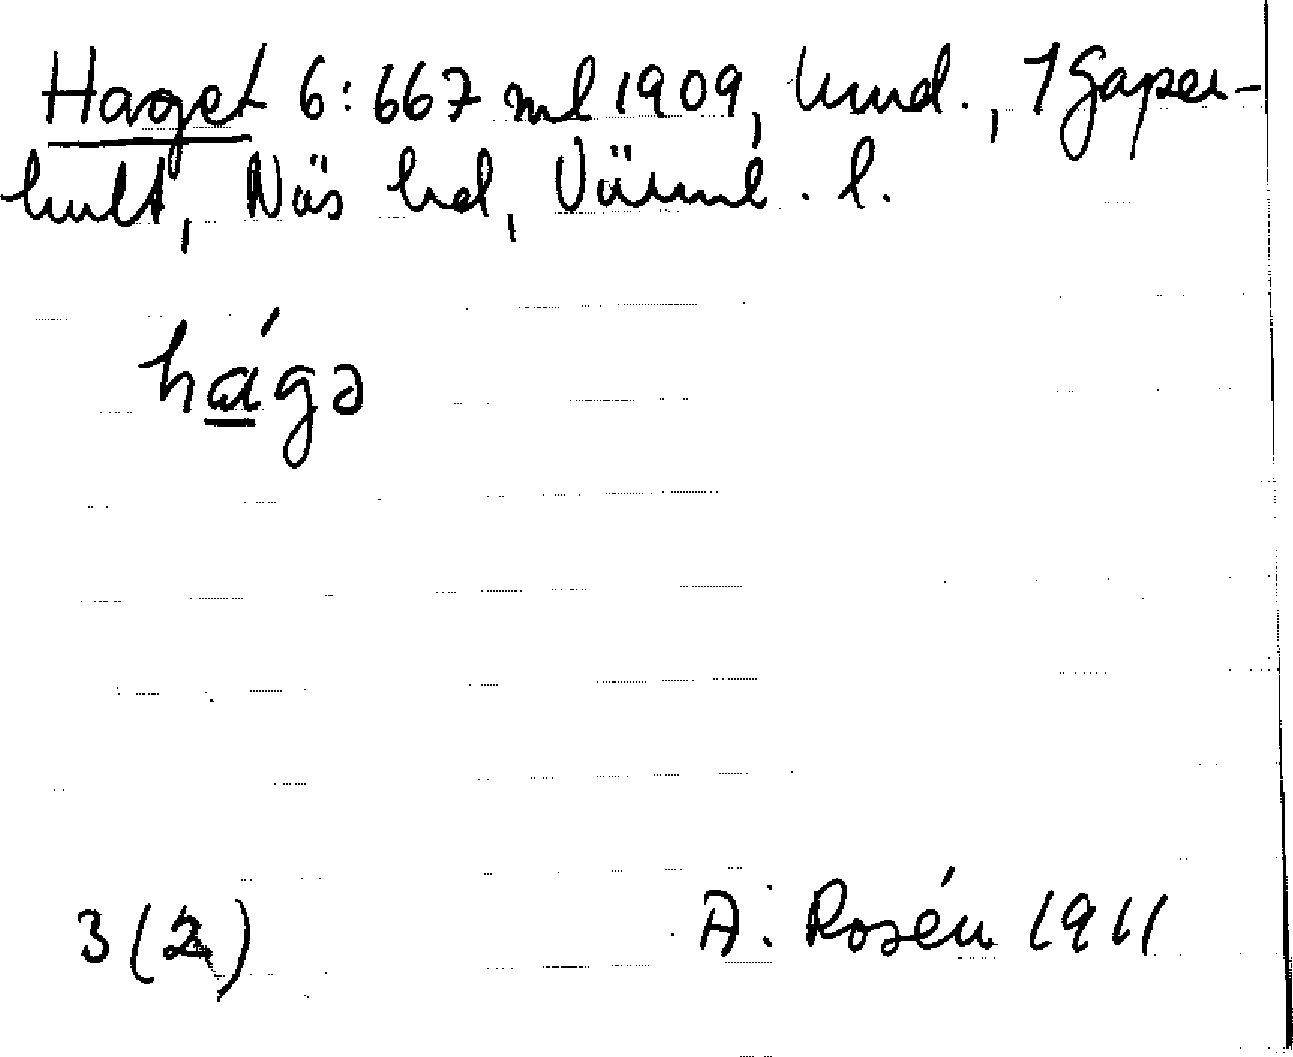 Haget 6:667 ml 1909, hmd., 1 Gaper-
hult, Näs hd, Värml. l.
hágə
3(2) A. Rosén 1911